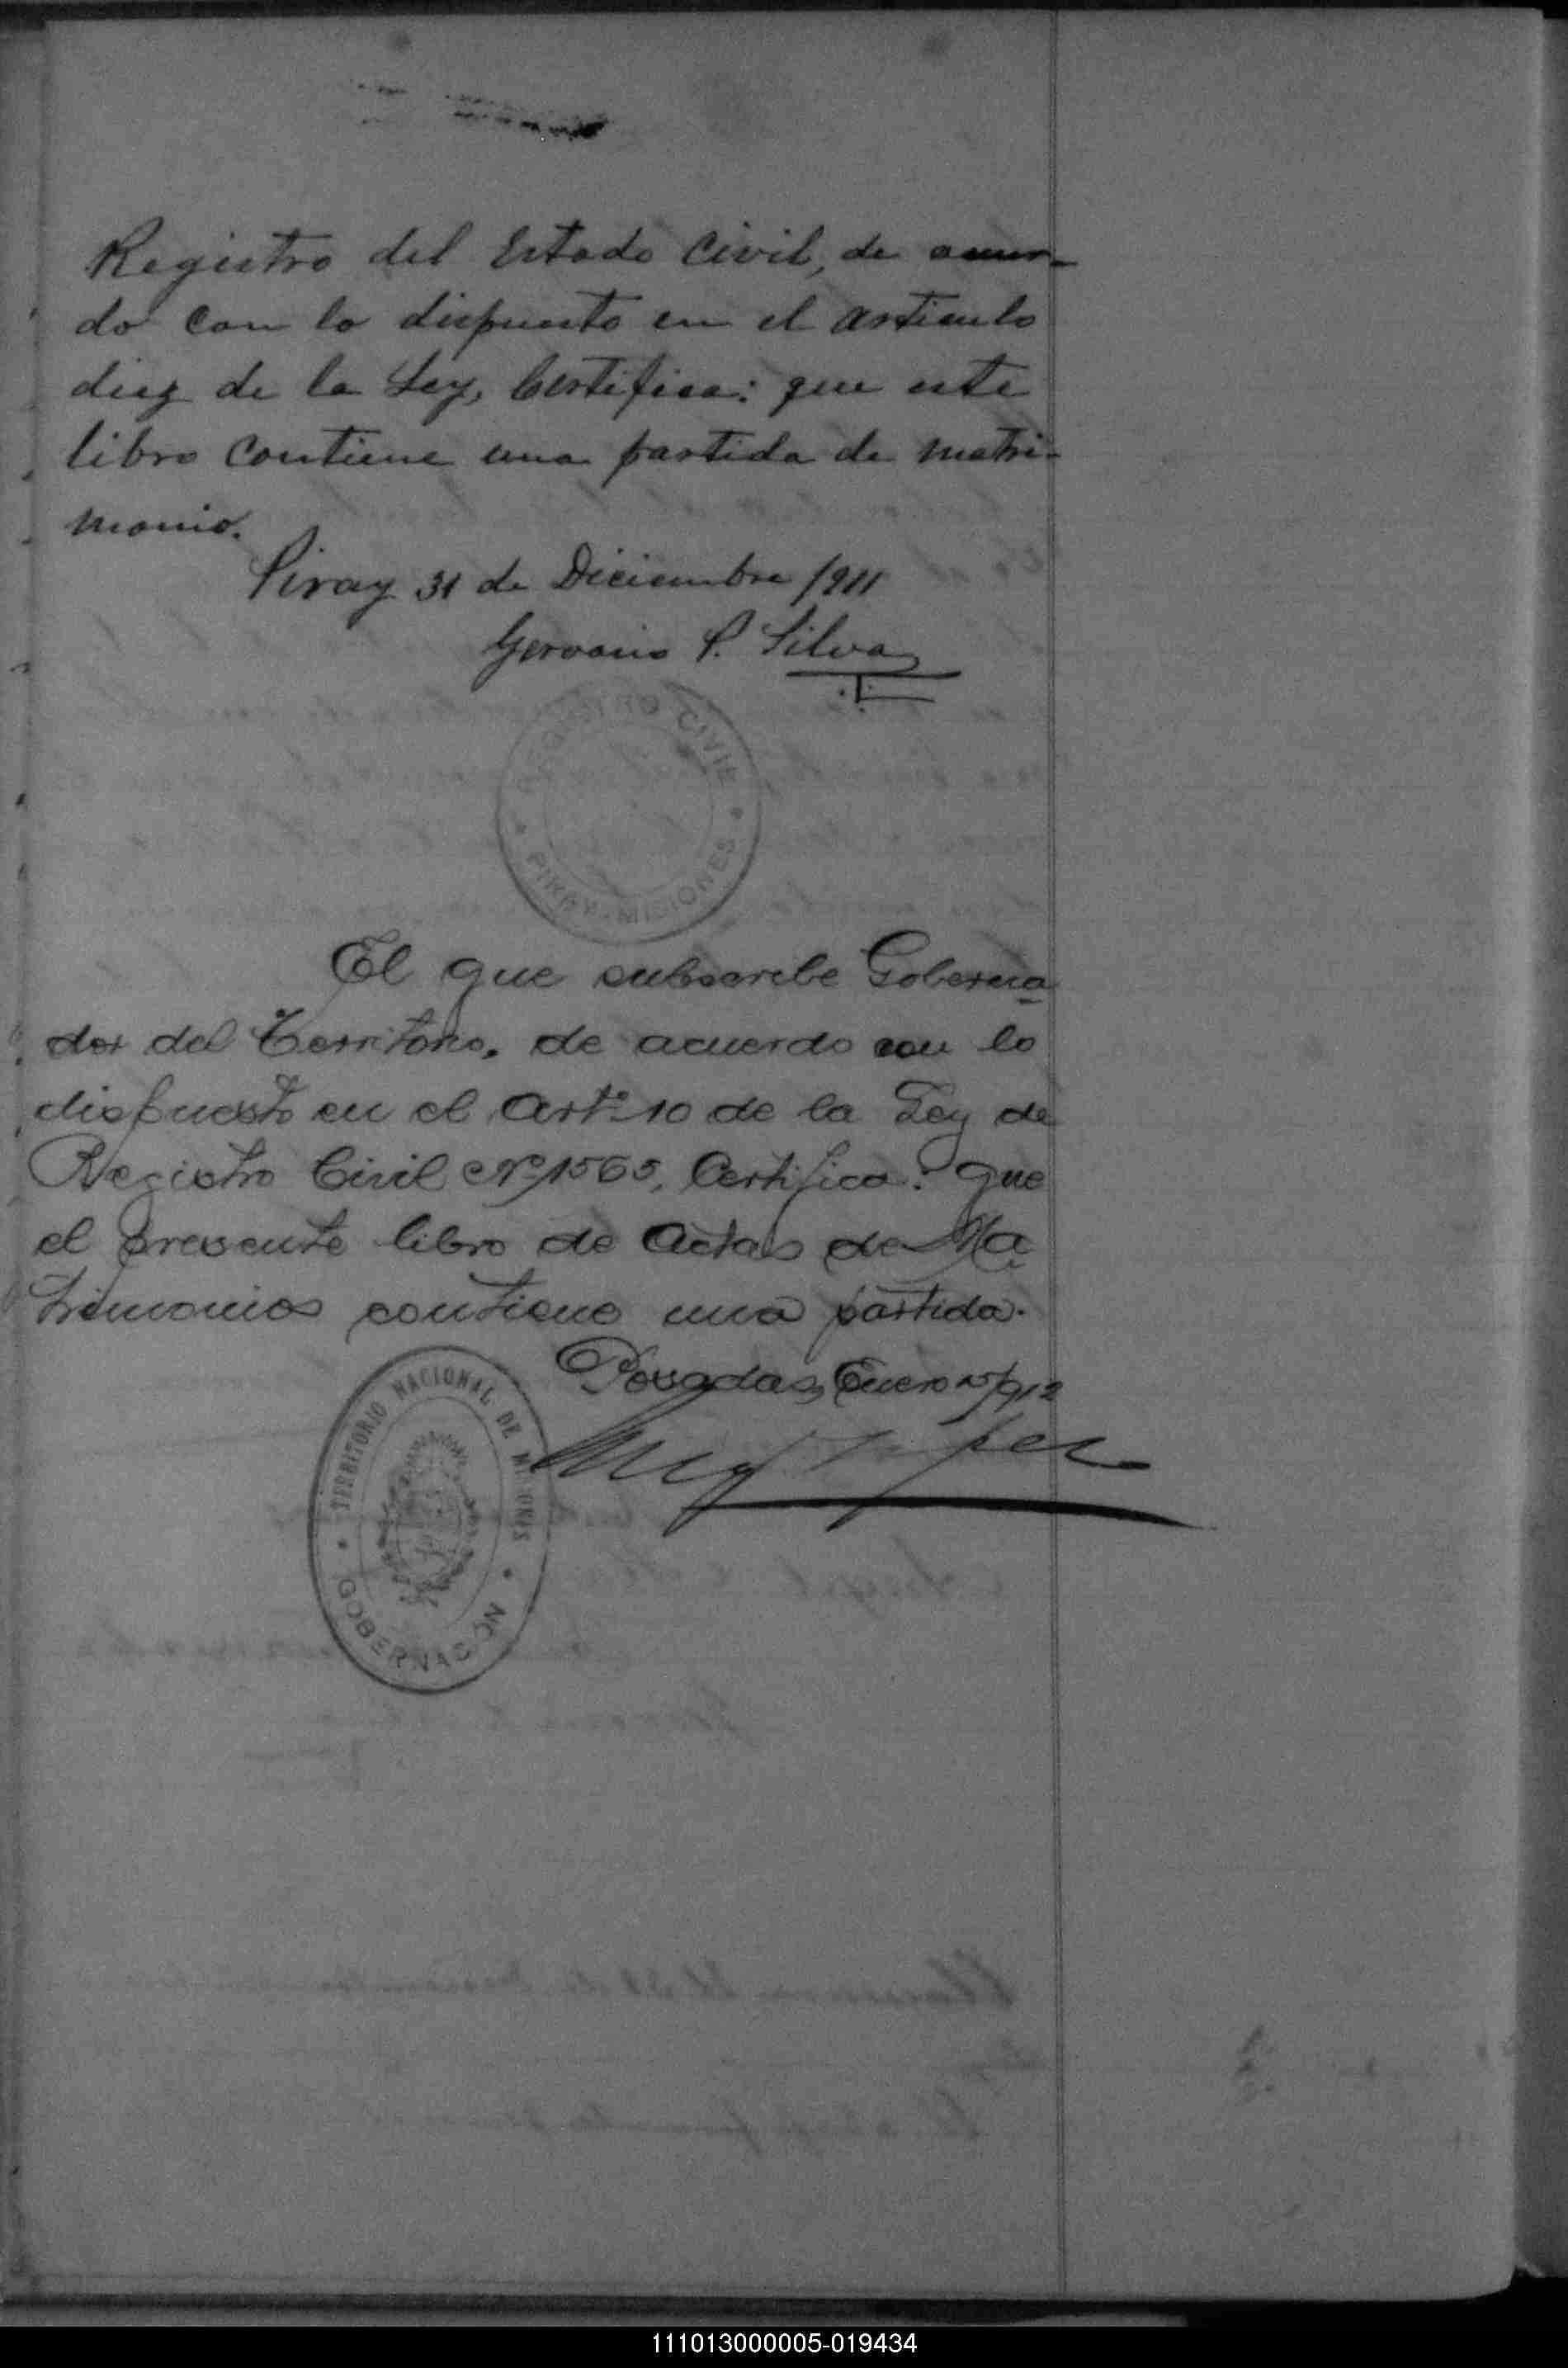 Registro del Estado Civil, de acuer-
do con lo dispuesto en el articulo
diez de la Ley, Certifica: que este
libro contiene una partida de matri-
monio.
Piray 31 de Diciembre 1911
Gervasio P. Silva
REGISTRO CIVIL
PIRAY-MISIONES
El que subscribe Goberna
dor del Territorio, de acuerdo con lo
dispuesto en el Artº 10 de la Ley de
Registro Civil Nº 1565, Certifica: que
el presente libro de Actas de Ma
trimonios contiene una partida.
Posadas, Enero 15/912
TERRITORIO NACIONAL DE MISIONES
GOBERNACIÓN
111013000005-019434